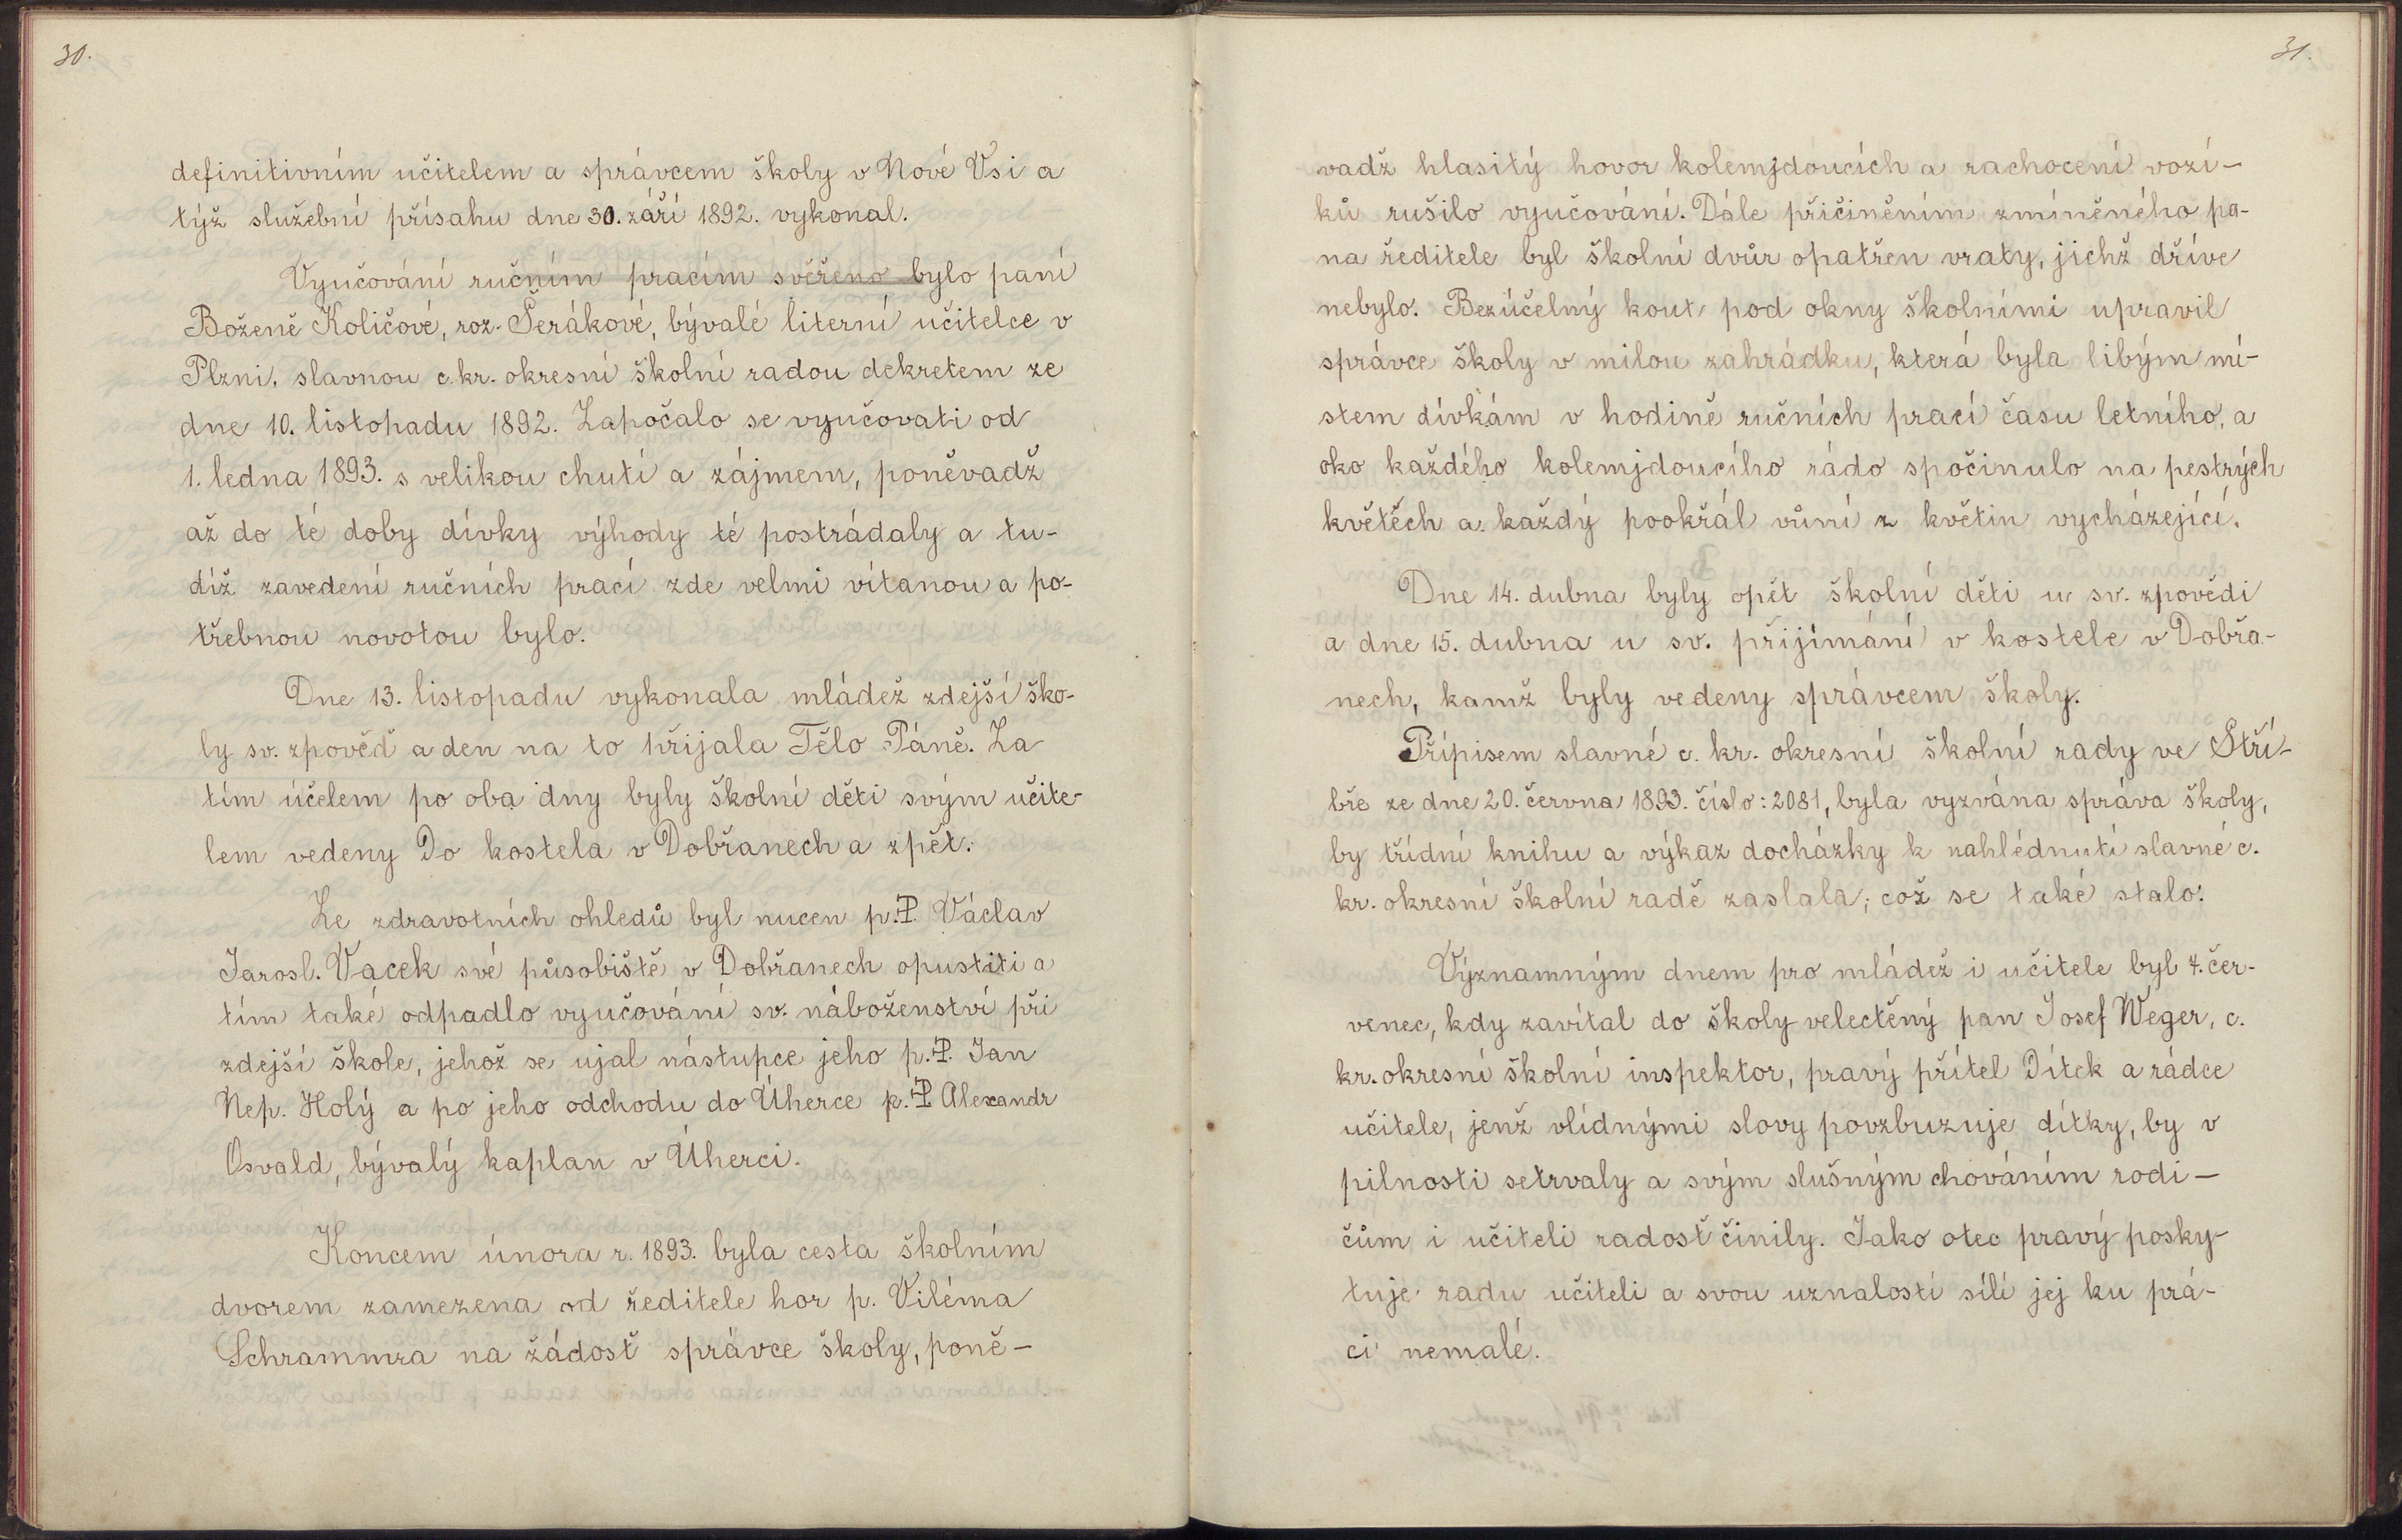 30.
definitivním učitelem a správcem školy v Nové Vsi a
týž služební přísahu dne 30. září 1892. vykonal.
Vyučování ručním pracím svěřeno bylo paní
Boženě Količové, roz. Šerákové, bývalé literní učitelce v
Plzni, slavnou c. kr. okresní školní radou dekretem ze
dne 10. listopadu 1892. Započalo se vyučovati od
1. ledna 1893. s velikou chutí a zájmem, poněvadž
až do té doby dívky výhody té postrádaly a tu-
díž zavedení ručních prací zde velmi vítanou a po-
třebnou novotou bylo.
Dne 13. listopadu vykonala mládež zdejší ško-
ly sv. zpověď a den na to přijala Tělo Páně. Za
tím účelem po oba dny byly školní děti svým učite-
lem vedeny Do kostela v Dobřanech a zpět.
Ze zdravotních ohledů byl nucen p. P. Václav
Jarosl. Vacek své působiště v Dobřanech opustiti a
tím také odpadlo vyučování sv. náboženství při
zdejší škole, jehož se ujal nástupce jeho p. P. Jan
Nep. Holý a po jeho odchodu do Úherce p. P. Alexandr
Osvald, bývalý kaplan v Úherci.
Koncem února r. 1893. byla cesta školním
dvorem zamezena od ředitele hor p. Viléma
Schrammra na žádosť správce školy, poně-
31.
vadž hlasitý hovor kolemjdoucích a rachocení vozí-
ků rušilo vyučování. Dále přičiněním zmíněného pa-
na ředitele byl školní dvůr opatřen vraty, jichž dříve
nebylo. Bezúčelný kout pod okny školními upravil
správce školy v milou zahrádku, která byla libým mí-
stem dívkám v hodině ručních prací času letního, a
oko každého kolemjdoucího rádo spočinulo na pestrých
květěch a každý pookřál vůní z květin vycházející.
Dne 14. dubna byly opět školní děti u sv. zpovědi
a dne 15. dubna u sv. přijímání v kostele v Dobřa-
nech, kamž byly vedeny správcem školy.
Přípisem slavné c. kr. okresní školní rady ve Stří-
bře ze dne 20. června 1893. číslo: 2081, byla vyzvána správa školy,
by třídní knihu a výkaz docházky k nahlédnutí slavné c.
kr. okresní školní radě zaslala; což se také stalo.
Významným dnem pro mládež i učitele byl 7. čer-
venec, kdy zavítal do školy velectěný pan Josef Weger, c.
kr. okresní školní inspektor, pravý přítel Dítek a rádce
učitele, jenž vlídnými slovy povzbuzuje dítky, by v
pilnosti setrvaly a svým slušným chováním rodi-
čům i učiteli radosť činily. Jako otec pravý posky-
tuje radu učiteli a svou uznalostí sílí jej ku prá-
ci nemalé.